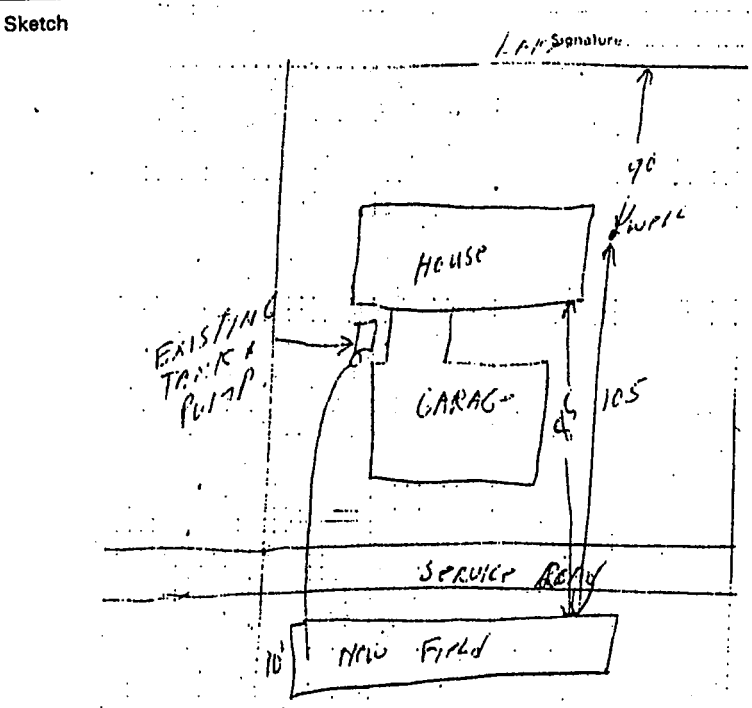 Sketch
Signature
90
House
EXISTING
TANK &
PUMP.
GARAGE
105
SERVICE
10'
NEW FIELD